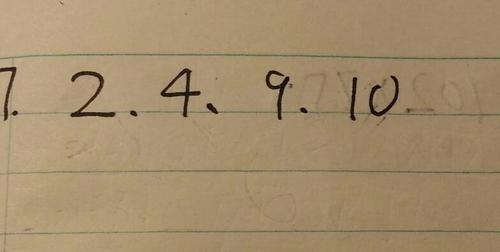 7. 2. 4. 9. 10